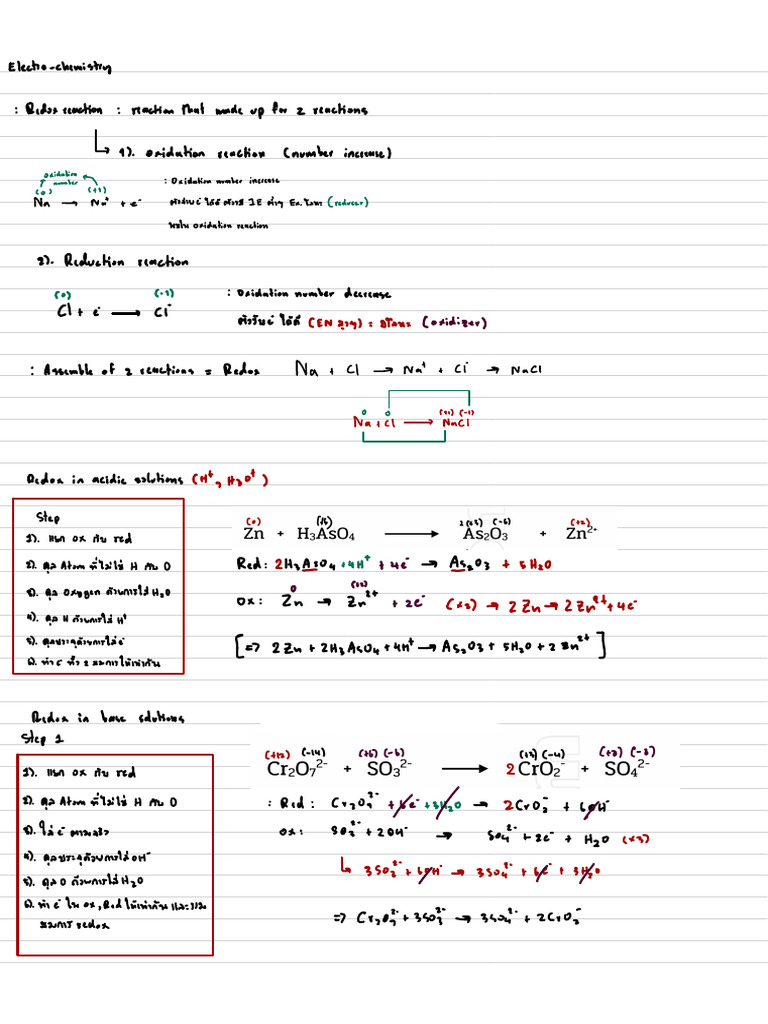 Electro-chemistry
: Redox reaction : reaction that made up for 2 reactions
1). oxidation reaction (number increase)
oxidation number
: Oxidation number increase
(0) (+1)
Na → Na⁺ + e⁻
(reducer)
oxidation reaction
2). Reduction reaction
(0) (-1)
: Oxidation number decrease
Cl + e⁻ → Cl⁻
ตัวรับe⁻ ได้ดี (EN สูงๆ) = อโลหะ (oxidizer)
: Assemble of 2 reactions = Redox Na + Cl → Na⁺ + Cl⁻ → NaCl
0 0 (+1) (-1)
Na + Cl → NaCl
Redox in acidic solutions (H⁺, H₃O⁺)
Step
1). แยก ox กับ red
2). ดุล Atom ที่ไม่ใช่ H กับ O
3). ดุล Oxygen ด้วยการใส่ H₂O
4). ดุล H ด้วยการใส่ H⁺
5). ดุลประจุด้วยการใส่ e⁻
6). ทำ e⁻ ทั้ง 2 สมการให้เท่ากัน
(0) (+5) 2(+3) (-6) (+2)
Zn + H₃AsO₄ → As₂O₃ + Zn²⁺
Red: 2H₃AsO₄ + 4H⁺ + 4e⁻ → As₂O₃ + 5H₂O
0 (+2)
Ox: Zn → Zn²⁺ + 2e⁻ (×2) → 2Zn → 2Zn²⁺ + 4e⁻
[=> 2Zn + 2H₃AsO₄ + 4H⁺ → As₂O₃ + 5H₂O + 2Zn²⁺]
Redox in base solutions
Step 1
1). แยก ox กับ red
2). ดุล Atom ที่ไม่ใช่ H กับ O
3). ใส่ e⁻ ตามจริง
4). ดุลประจุด้วยการใส่ OH⁻
5). ดุล O ด้วยการใส่ H₂O
6). ทำ e⁻ ใน ox, Red ให้เท่ากัน และรวม
สมการ redox
(+12) (-14)
Cr₂O₇²⁻ + SO₃²⁻ → 2CrO₂⁻ + SO₄²⁻
: Red: Cr₂O₇²⁻ + 6e⁻ + 3H₂O → 2CrO₂⁻ + 6OH⁻
Ox: SO₃²⁻ + 2OH⁻ → SO₄²⁻ + 2e⁻ + H₂O (×3)
3SO₃²⁻ + 6OH⁻ → 3SO₄²⁻ + 6e⁻ + 3H₂O
=> Cr₂O₇²⁻ + 3SO₃²⁻ → 3SO₄²⁻ + 2CrO₂⁻